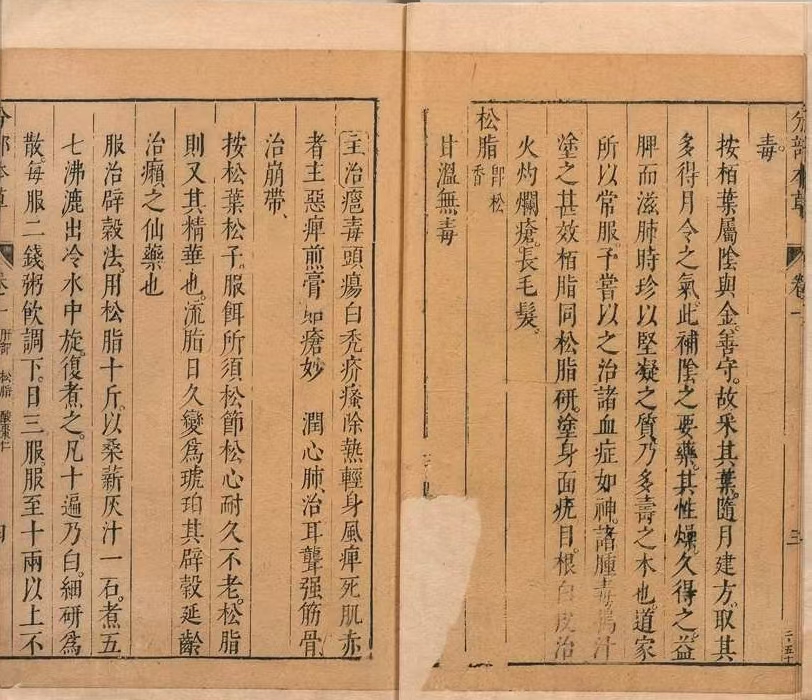 分部本草 卷一 三
毒。
按栢葉屬陰與金。善守。故采其葉。隨月建方。取其
多得月令之氣。此補陰之要藥。其性燥。久得之。益
脾而滋肺時珍以堅凝之質乃多壽之木也。道家
所以常服。予嘗以之治諸血症如神。諸腫毒搗汁
塗之甚效栢脂同松脂研。塗身面疣目。根白皮治
火灼爛瘡。長毛髮。
松脂 即松香
甘溫無毒
主治癰毒頭瘍白禿疥瘙除熱輕身風痺死肌赤
者主惡痺煎膏 瘡妙 潤心肺。治耳聾强筋骨
治崩帶、
按松葉松子。服餌所須松節松心耐久不老。松脂
則又其精華也。流脂日久變爲琥珀其辟穀延齡
治癩之仙藥也
服治辟穀法。用松脂十斤。以桑薪灰汁一石。煮五
七沸漉出冷水中旋。復煮之。凡十遍乃白。細研爲
散。每服二錢粥飲調下。日三服。服至十兩以上不
分部本草 卷一 肝部 松脂 酸棗仁 四